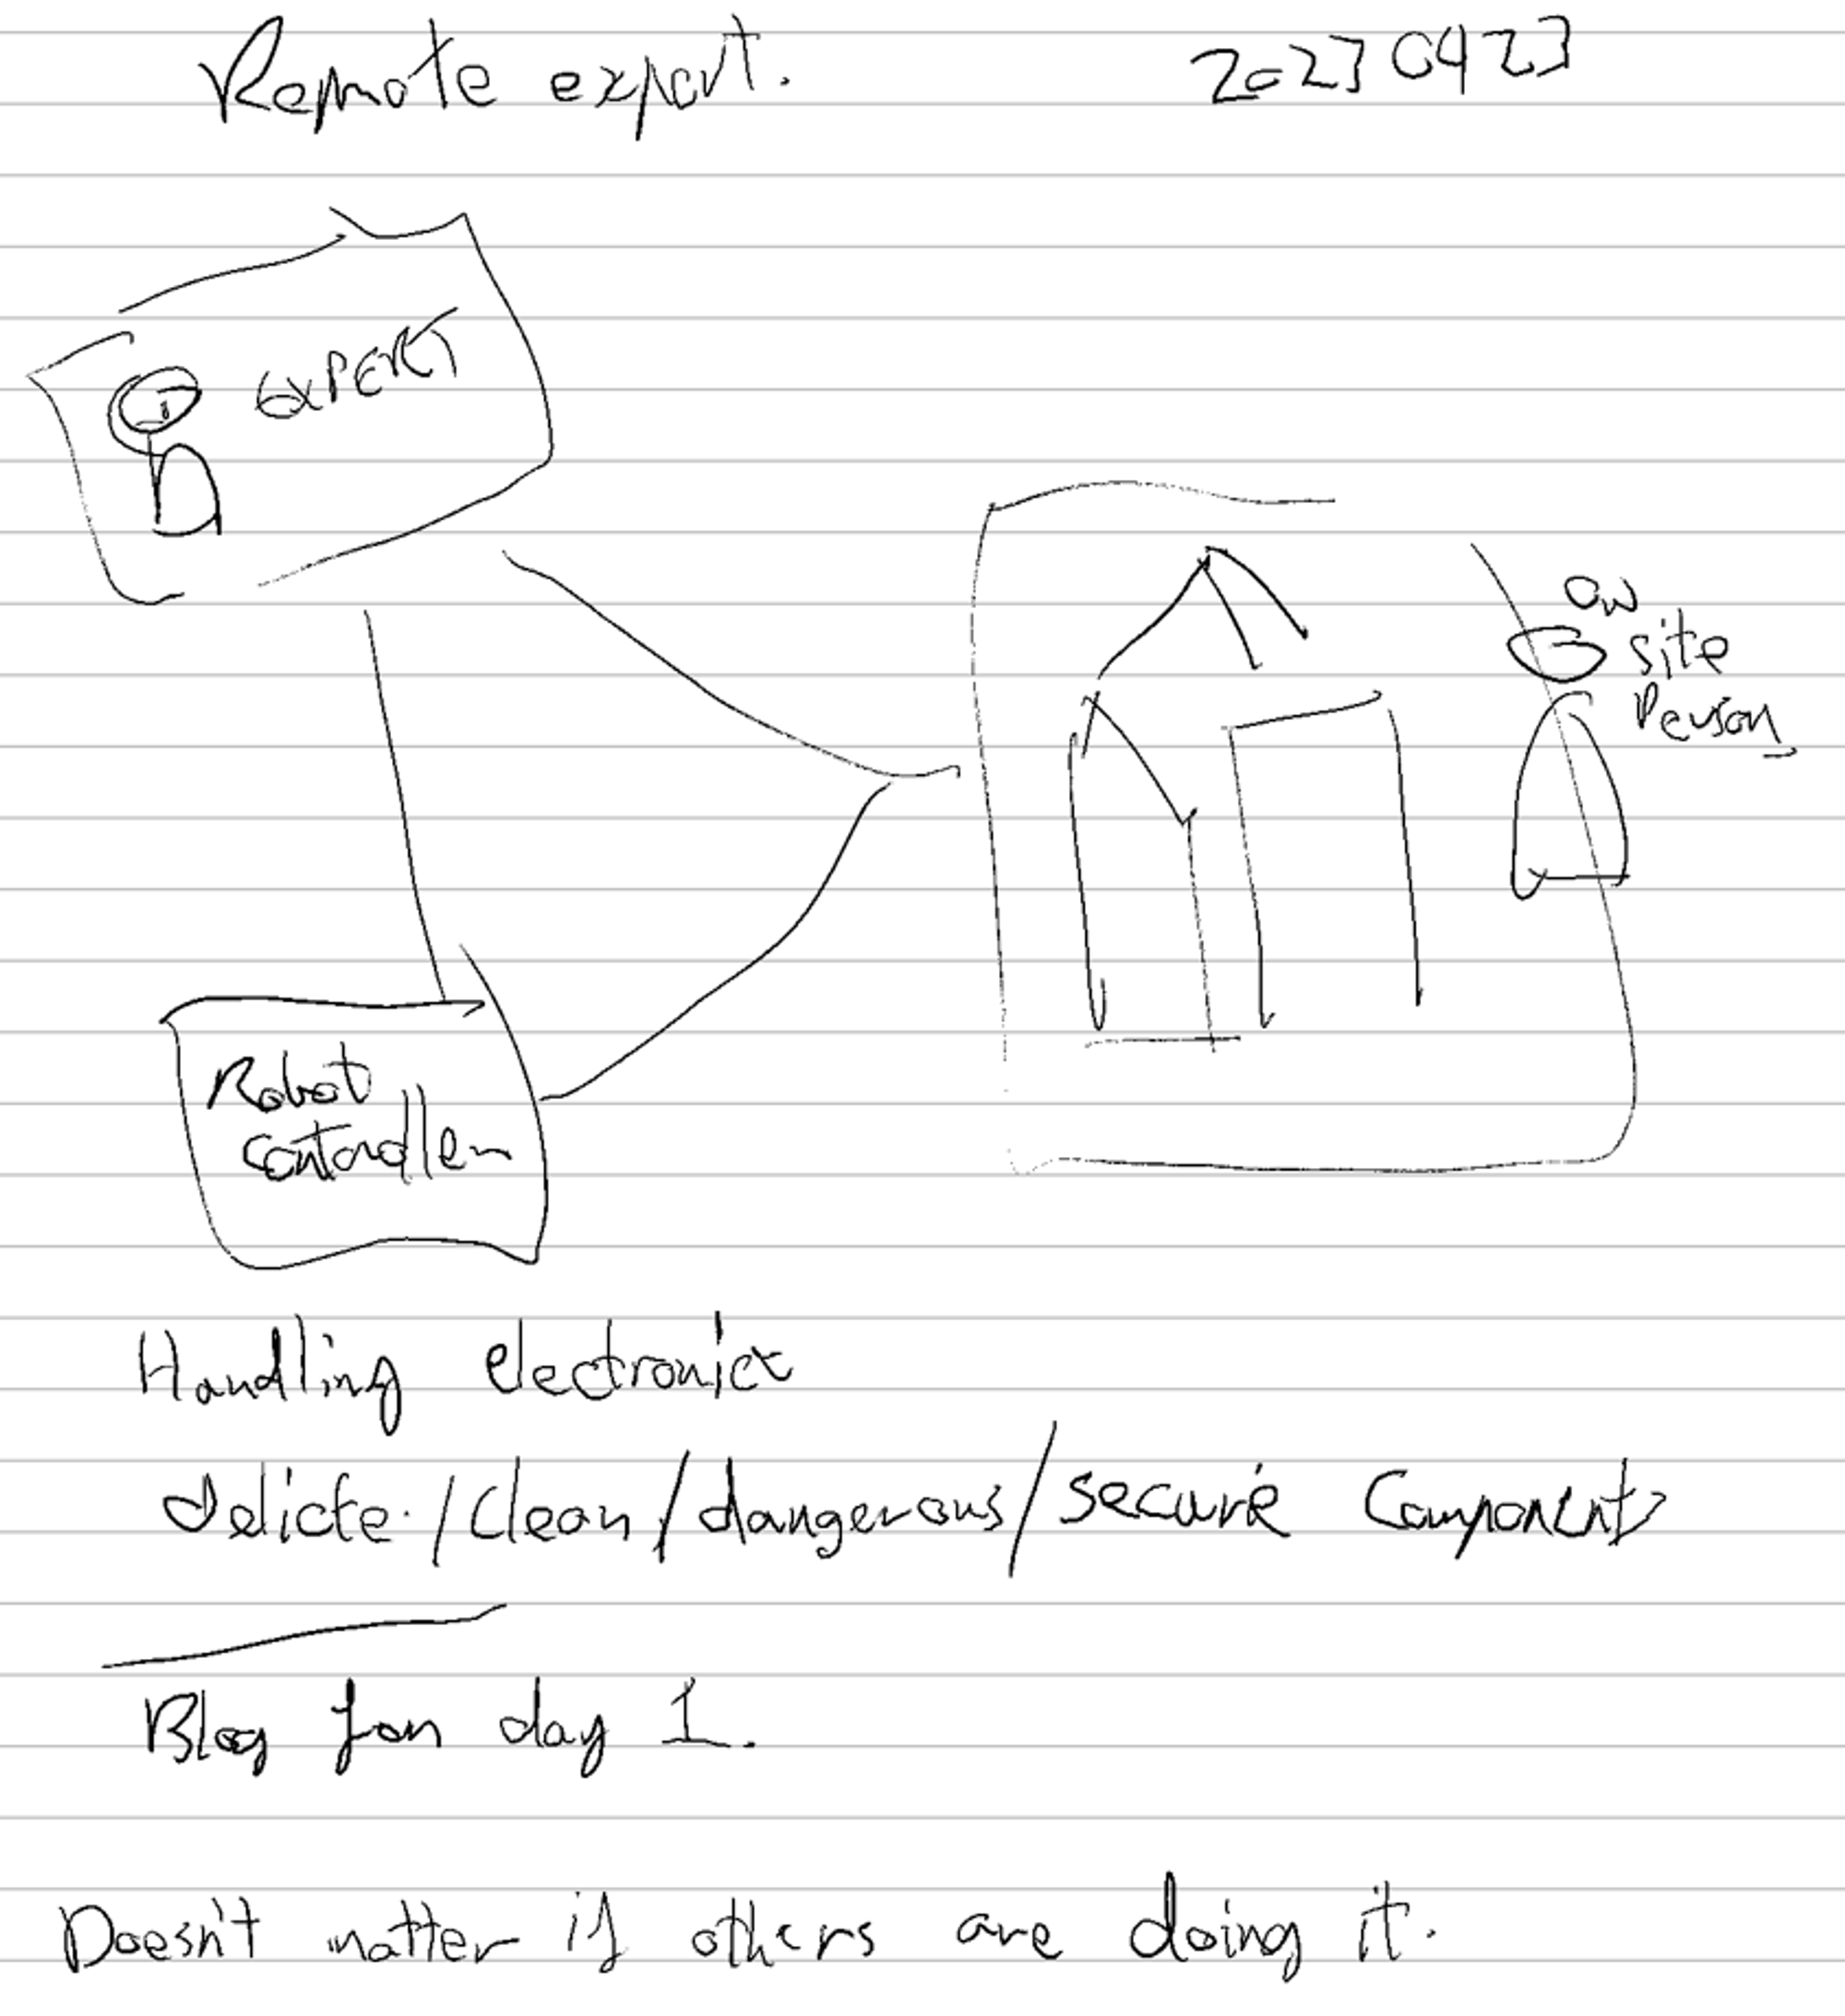 Remote expert. 20230423
EXPERT
On
site
Person
Robot
controller
Handling electronics
delicte/clean/dangerous/secure components
Blog for day 1.
Doesn't matter if others are doing it.